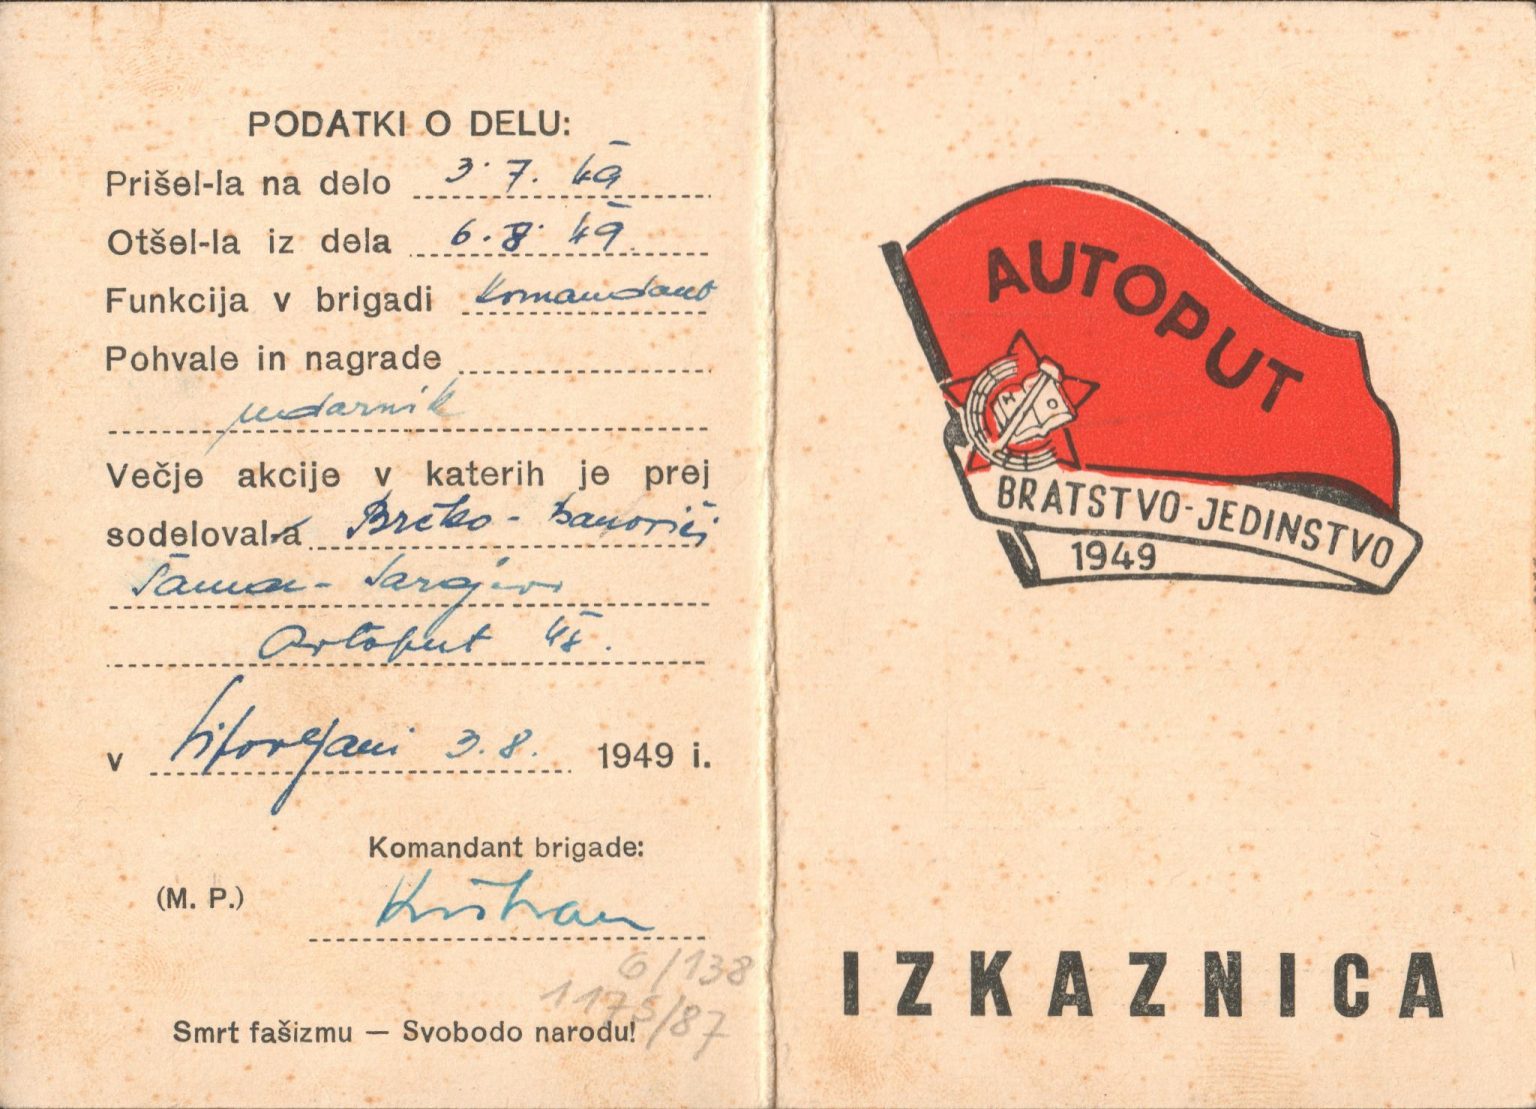 PODATKI O DELU:
Prišel-la na delo 3. 7. 49
Otšel-la iz dela 6. 8. 49.
Funkcija v brigadi Komandant
Pohvale in nagrade
udarnik
Večje akcije v katerih je prej
sodeloval-a Brčko - Banovići
Šamac - Sarajevo
Avtoput 48.
v 3. 8. 1949 i.
Komandant brigade:
(M. P.)
6/138
1175/87
Smrt fašizmu — Svobodo narodu!
AUTOPUT
H O
BRATSTVO-JEDINSTVO
1949
IZKAZNICA